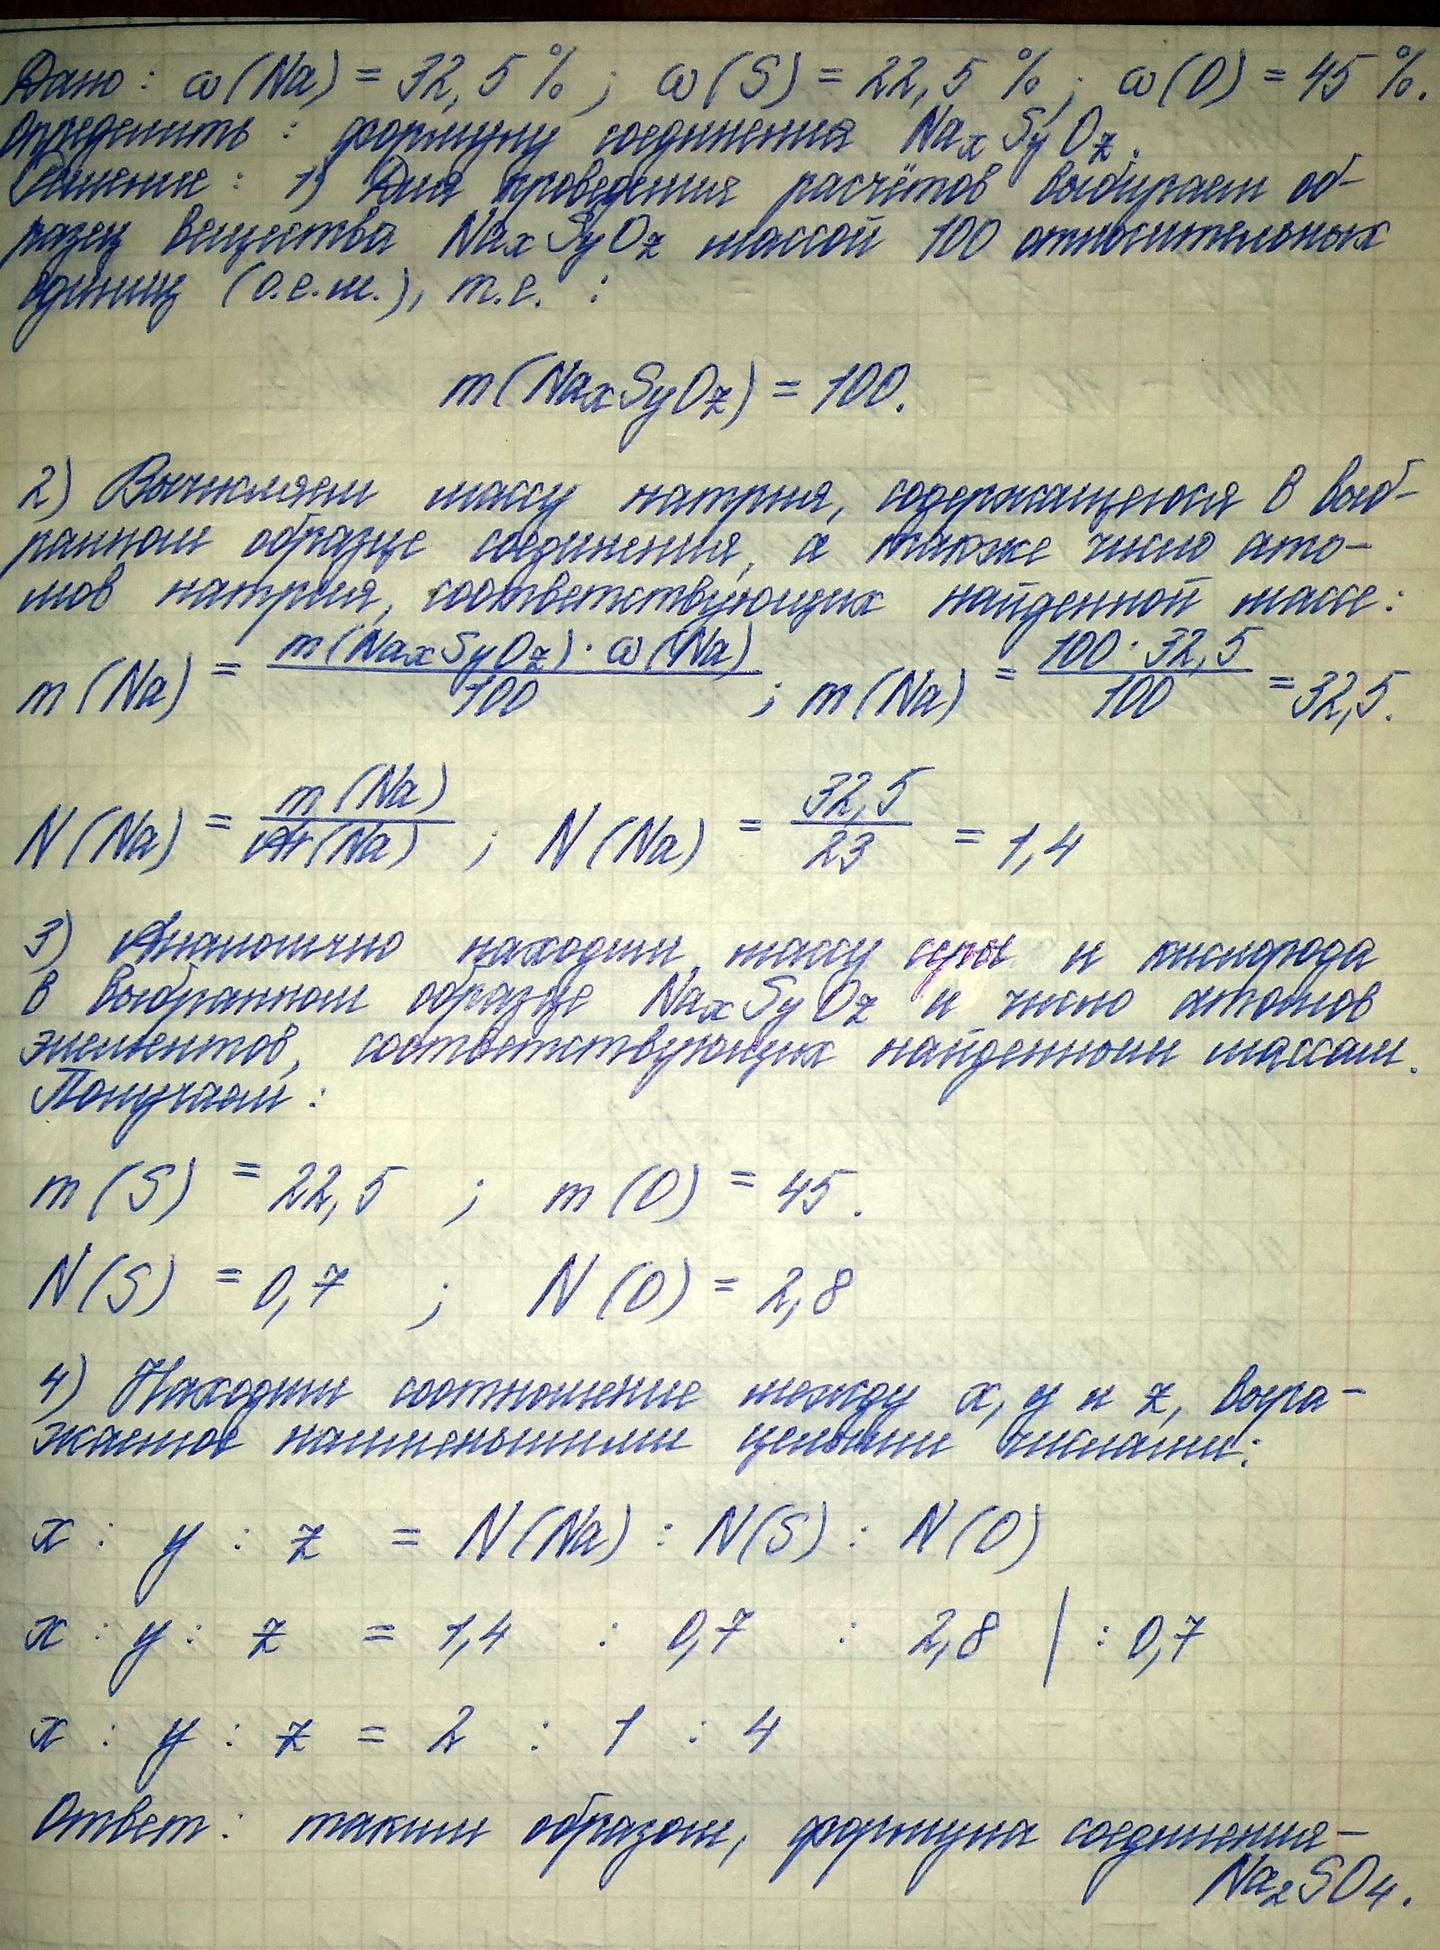 Дано: ω(Na) = 32,5 %; ω(S) = 22,5 %; ω(O) = 45 %.
Определить: формулу соединения NaxSyOz.
Решение: 1) Для проведения расчётов выбираем об-
разец вещества NaxSyOz массой 100 относительных
единиц (о.е.м.), т.е. :
m(NaxSyOz) = 100.
2) Вычисляем массу натрия, содержащегося в выб-
ранном образце соединения, а также число ато-
мов натрия, соответствующих найденной массе:
m(Na) = m(NaxSyOz) · ω(Na) / 100 ; m(Na) = 100 · 32,5 / 100 = 32,5.
N(Na) = m(Na) / Ar(Na) ; N(Na) = 32,5 / 23 = 1,4
3) Аналогично находим массу серы и кислорода
в выбранном образце NaxSyOz и число атомов
элементов, соответствующих найденным массам.
Получаем:
m(S) = 22,5 ; m(O) = 45.
N(S) = 0,7 ; N(O) = 2,8
4) Находим соотношение между x, y и z, выра-
жаемое наименьшими целыми числами:
x : y : z = N(Na) : N(S) : N(O)
x : y : z = 1,4 : 0,7 : 2,8 | : 0,7
x : y : z = 2 : 1 : 4
Ответ: таким образом, формула соединения –
Na2SO4.